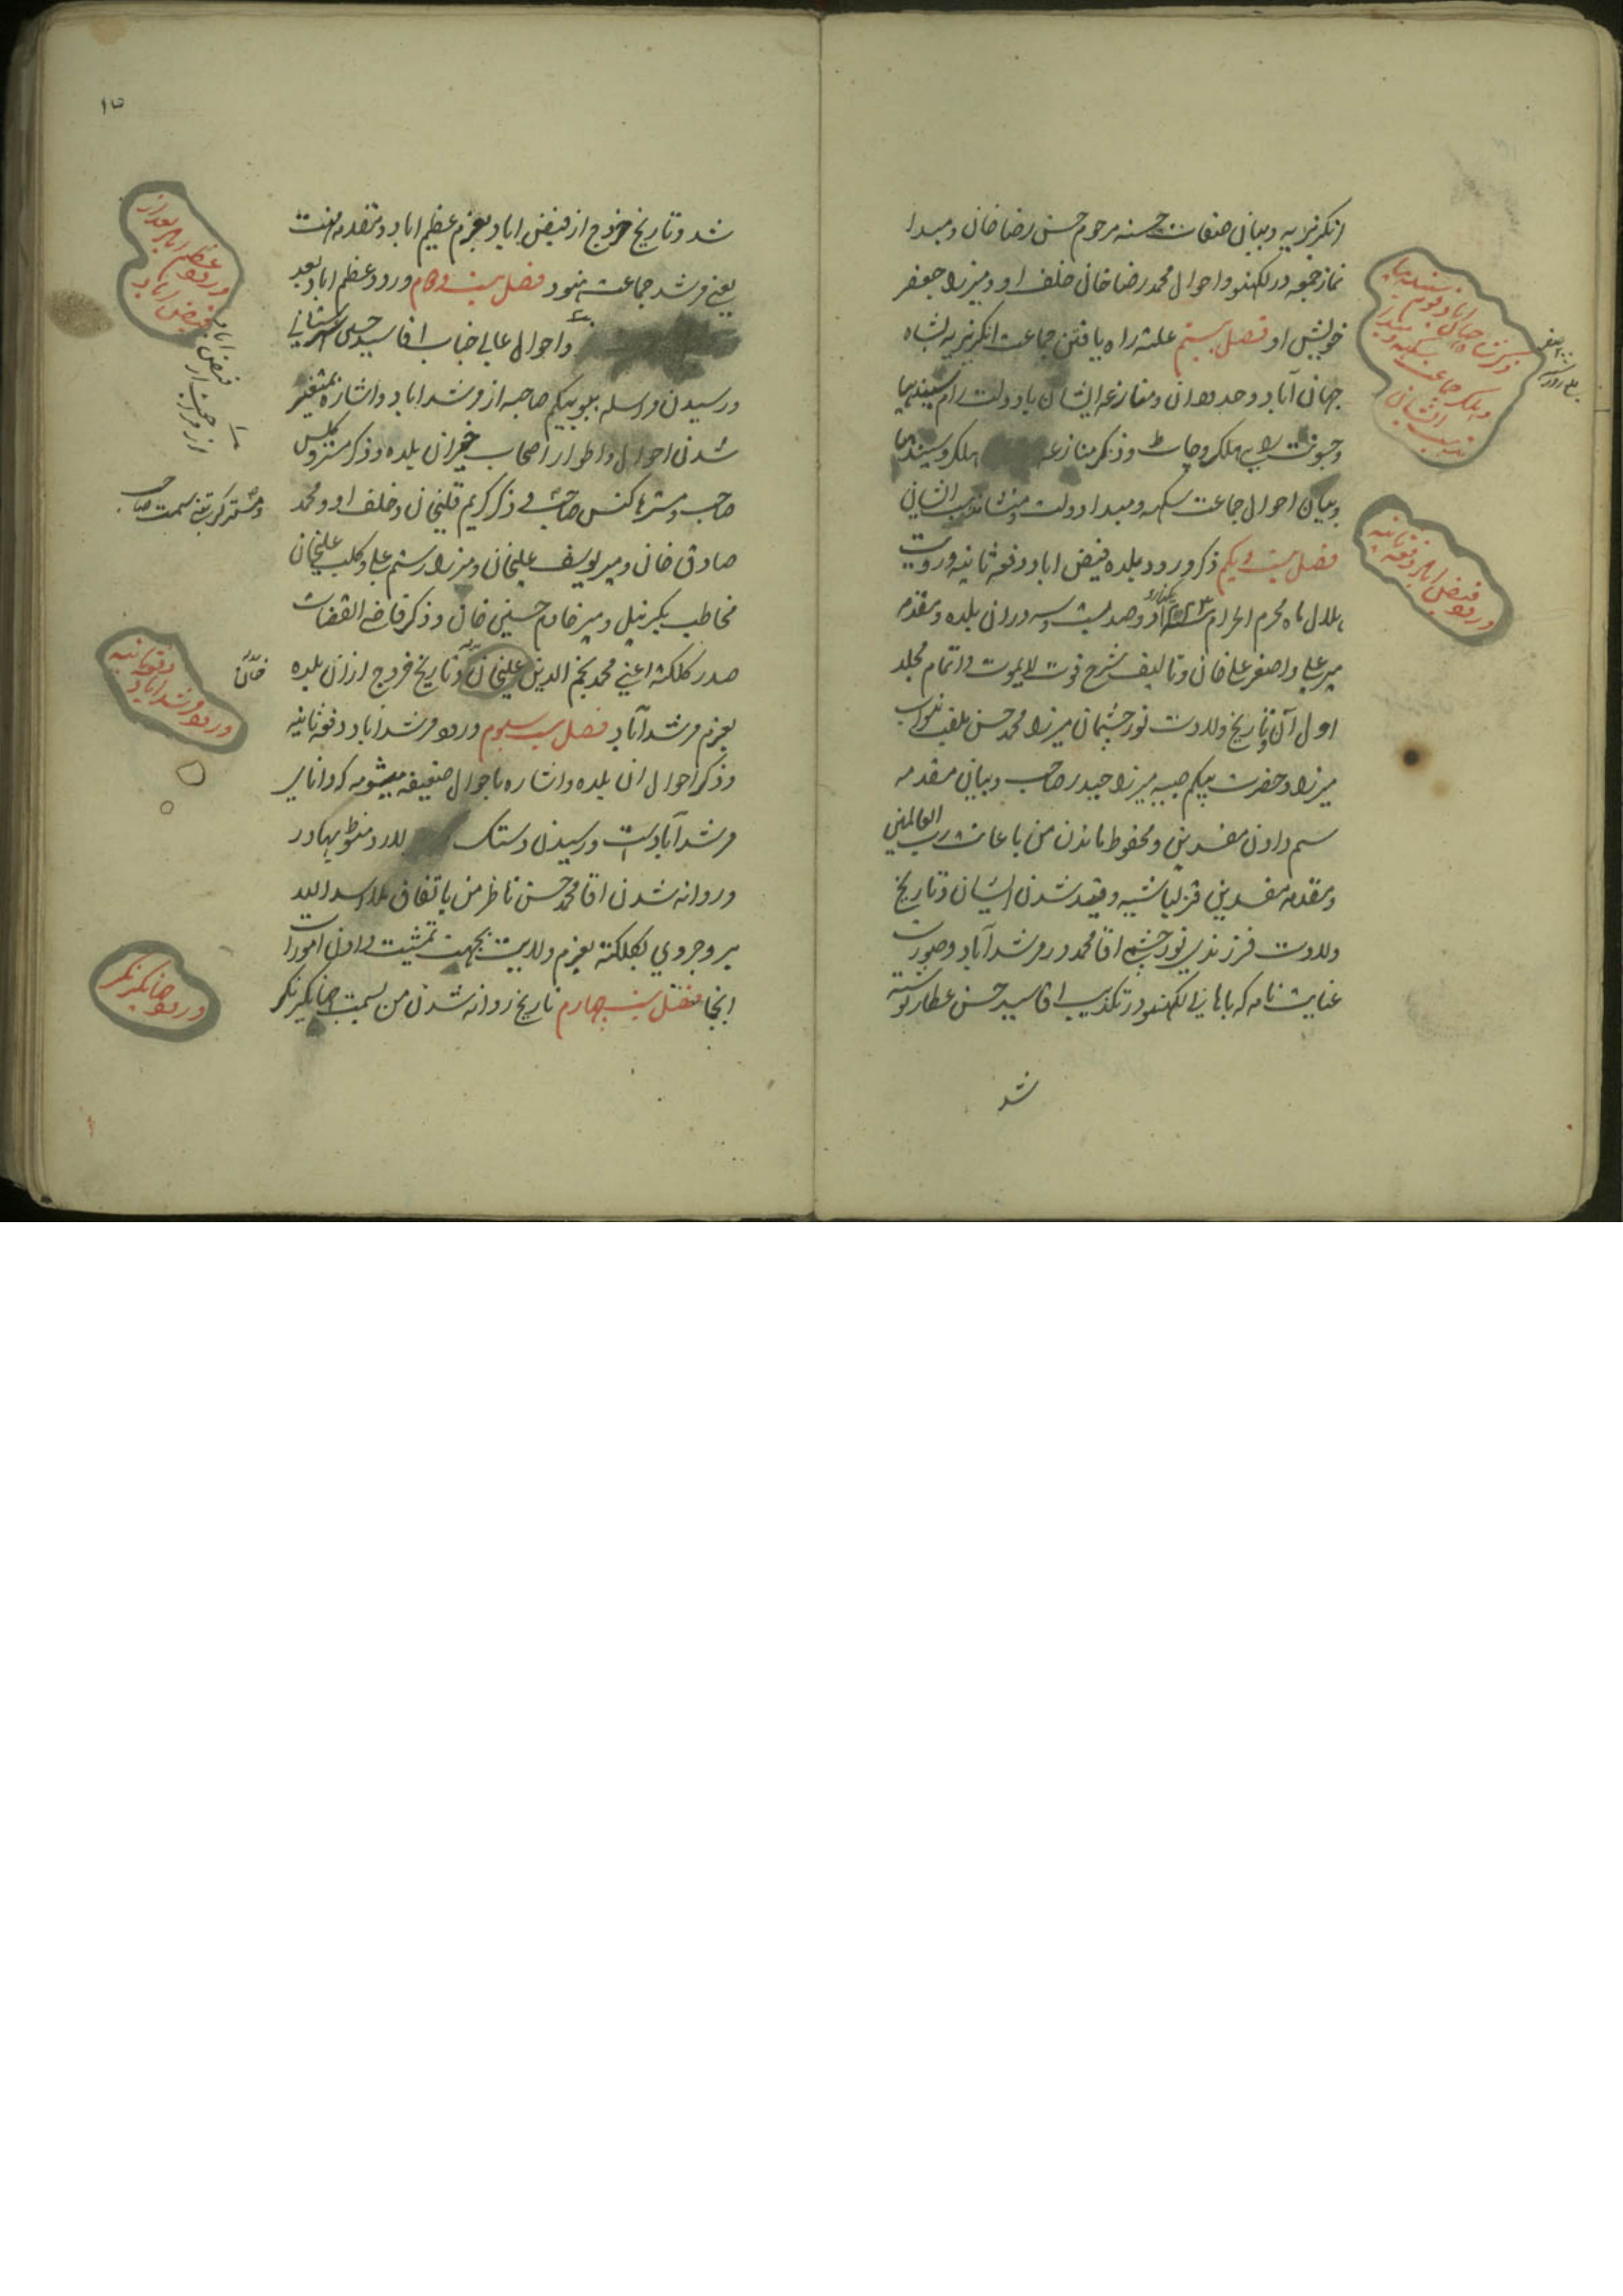 انکریزیه و بیان صفات حسنه مرحوم حسن رضا خان و مبدا
نماز جمعه در لکهنو و احوال محمد رضا خان خلف او و میرزا جعفر
خویش او فصل بیستم علت راه یافتن جماعت انکریزیه بشاه
جهان آباد و حدود ان و منازعه ایشان با دولت رام سیندهیا
و جسونت راو هلکر و جات و ذکر منازعه هلکر و سیندهیا
و بیان احوال جماعت سکهه و مبدا دولت و مذهب ایشان
فصل بیست و یکم ذکر ورود بلده فیض اباد دفعه ثانیه و رویت
هلال ماه محرم الحرام ۱۲۲۳ یکهزار و دو صد و بیست و سه در ان بلده و مقدمه
میر علی و اصغر علی خان و تالیف شرح قوت لا یموت و اتمام مجلد
اول آن و تاریخ ولادت نور چشمان میرزا محمد حسن ملقب بنواب
میرزا و حضرت بیکم صبیه میرزا حیدر صاحب و بیان مقدمه
سم دادن مفسدین و محفوظ ماندن من باعانت رب العالمین
و مقدمه مفسدین قزلباشیه و قید شدن ایشان و تاریخ
ولادت فرزندی نور چشم اقا محمد در مرشد آباد و صورت
عنایت نامه که باهالی لکهنو در تکذیب اقا سید حسن عطار نوشته
شد
ذکر شاه جهان اباد و قوم سیندهیا
و هلکر و جماعت سکهه و مبدا
مذهب ایشان
ورود فیض اباد دفعه ثانیه
۱۵
شد و تاریخ خروج از فیض اباد بعزم عظیم اباد و مقدمه مهنت
یعنی مرشد جماعت هنود فصل بیست و دوم ورود عظیم اباد بعد
و احوال عالی جناب اقا سید حسین شهرستانی
و رسیدن مراسله ببو بیکم صاحبه از مرشد اباد و اشاره بمتغیر
شدن احوال و اطوار اصحاب خیر ان بلده و ذکر مستر ویلس
صاحب و مستر هاکنس صاحب و ذکر کریم قلیخان و خلف او و محمد
صادق خان و میر یوسف علیخان و میرزا رستم علی و کلب علیخان
مخاطب بکرنیل و میر خادم حسین خان و ذکر قاضی القضات
صدر کلکته اعنی محمد نجم الدین علیخان و تاریخ خروج از ان بلده
بعزم مرشد آباد فصل بیست سیوم ورود مرشد اباد دفعه ثانیه
و ذکر احوال ان بلده و اشاره باحوال ضعیفه میشومه که دانای
مرشد آباد است و رسیدن دستک لارد منطو بهادر
و روانه شدن اقا محمد حسن ناظر من باتفاق ملا اسد الله
بروجردی بکلکته بعزم ولایت بجهت تمشیت دادن امورات
انجا فصل بیست چهارم تاریخ روانه شدن من بسمت جهانکیر نکر
ورود عظیم اباد بعد از
فیض اباد
از مراجعت از فیض اباد
ورود مرشد اباد
دفعه ثانیه
ورود جهانکیر نکر